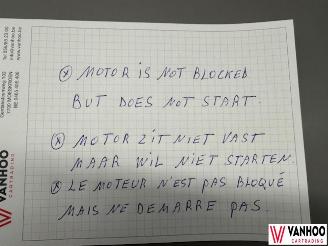 ⓧ MOTOR IS NOT BLOCKED
BUT DOES NOT START.
ⓧ MOTOR ZIT NIET VAST
MAAR WIL NIET STARTEN.
ⓧ LE MOTEUR N'EST PAS BLOQUÉ
MAIS NE DEMARRE PAS.
VANHOO
CARTRADING
VANHOO
CARTRADING